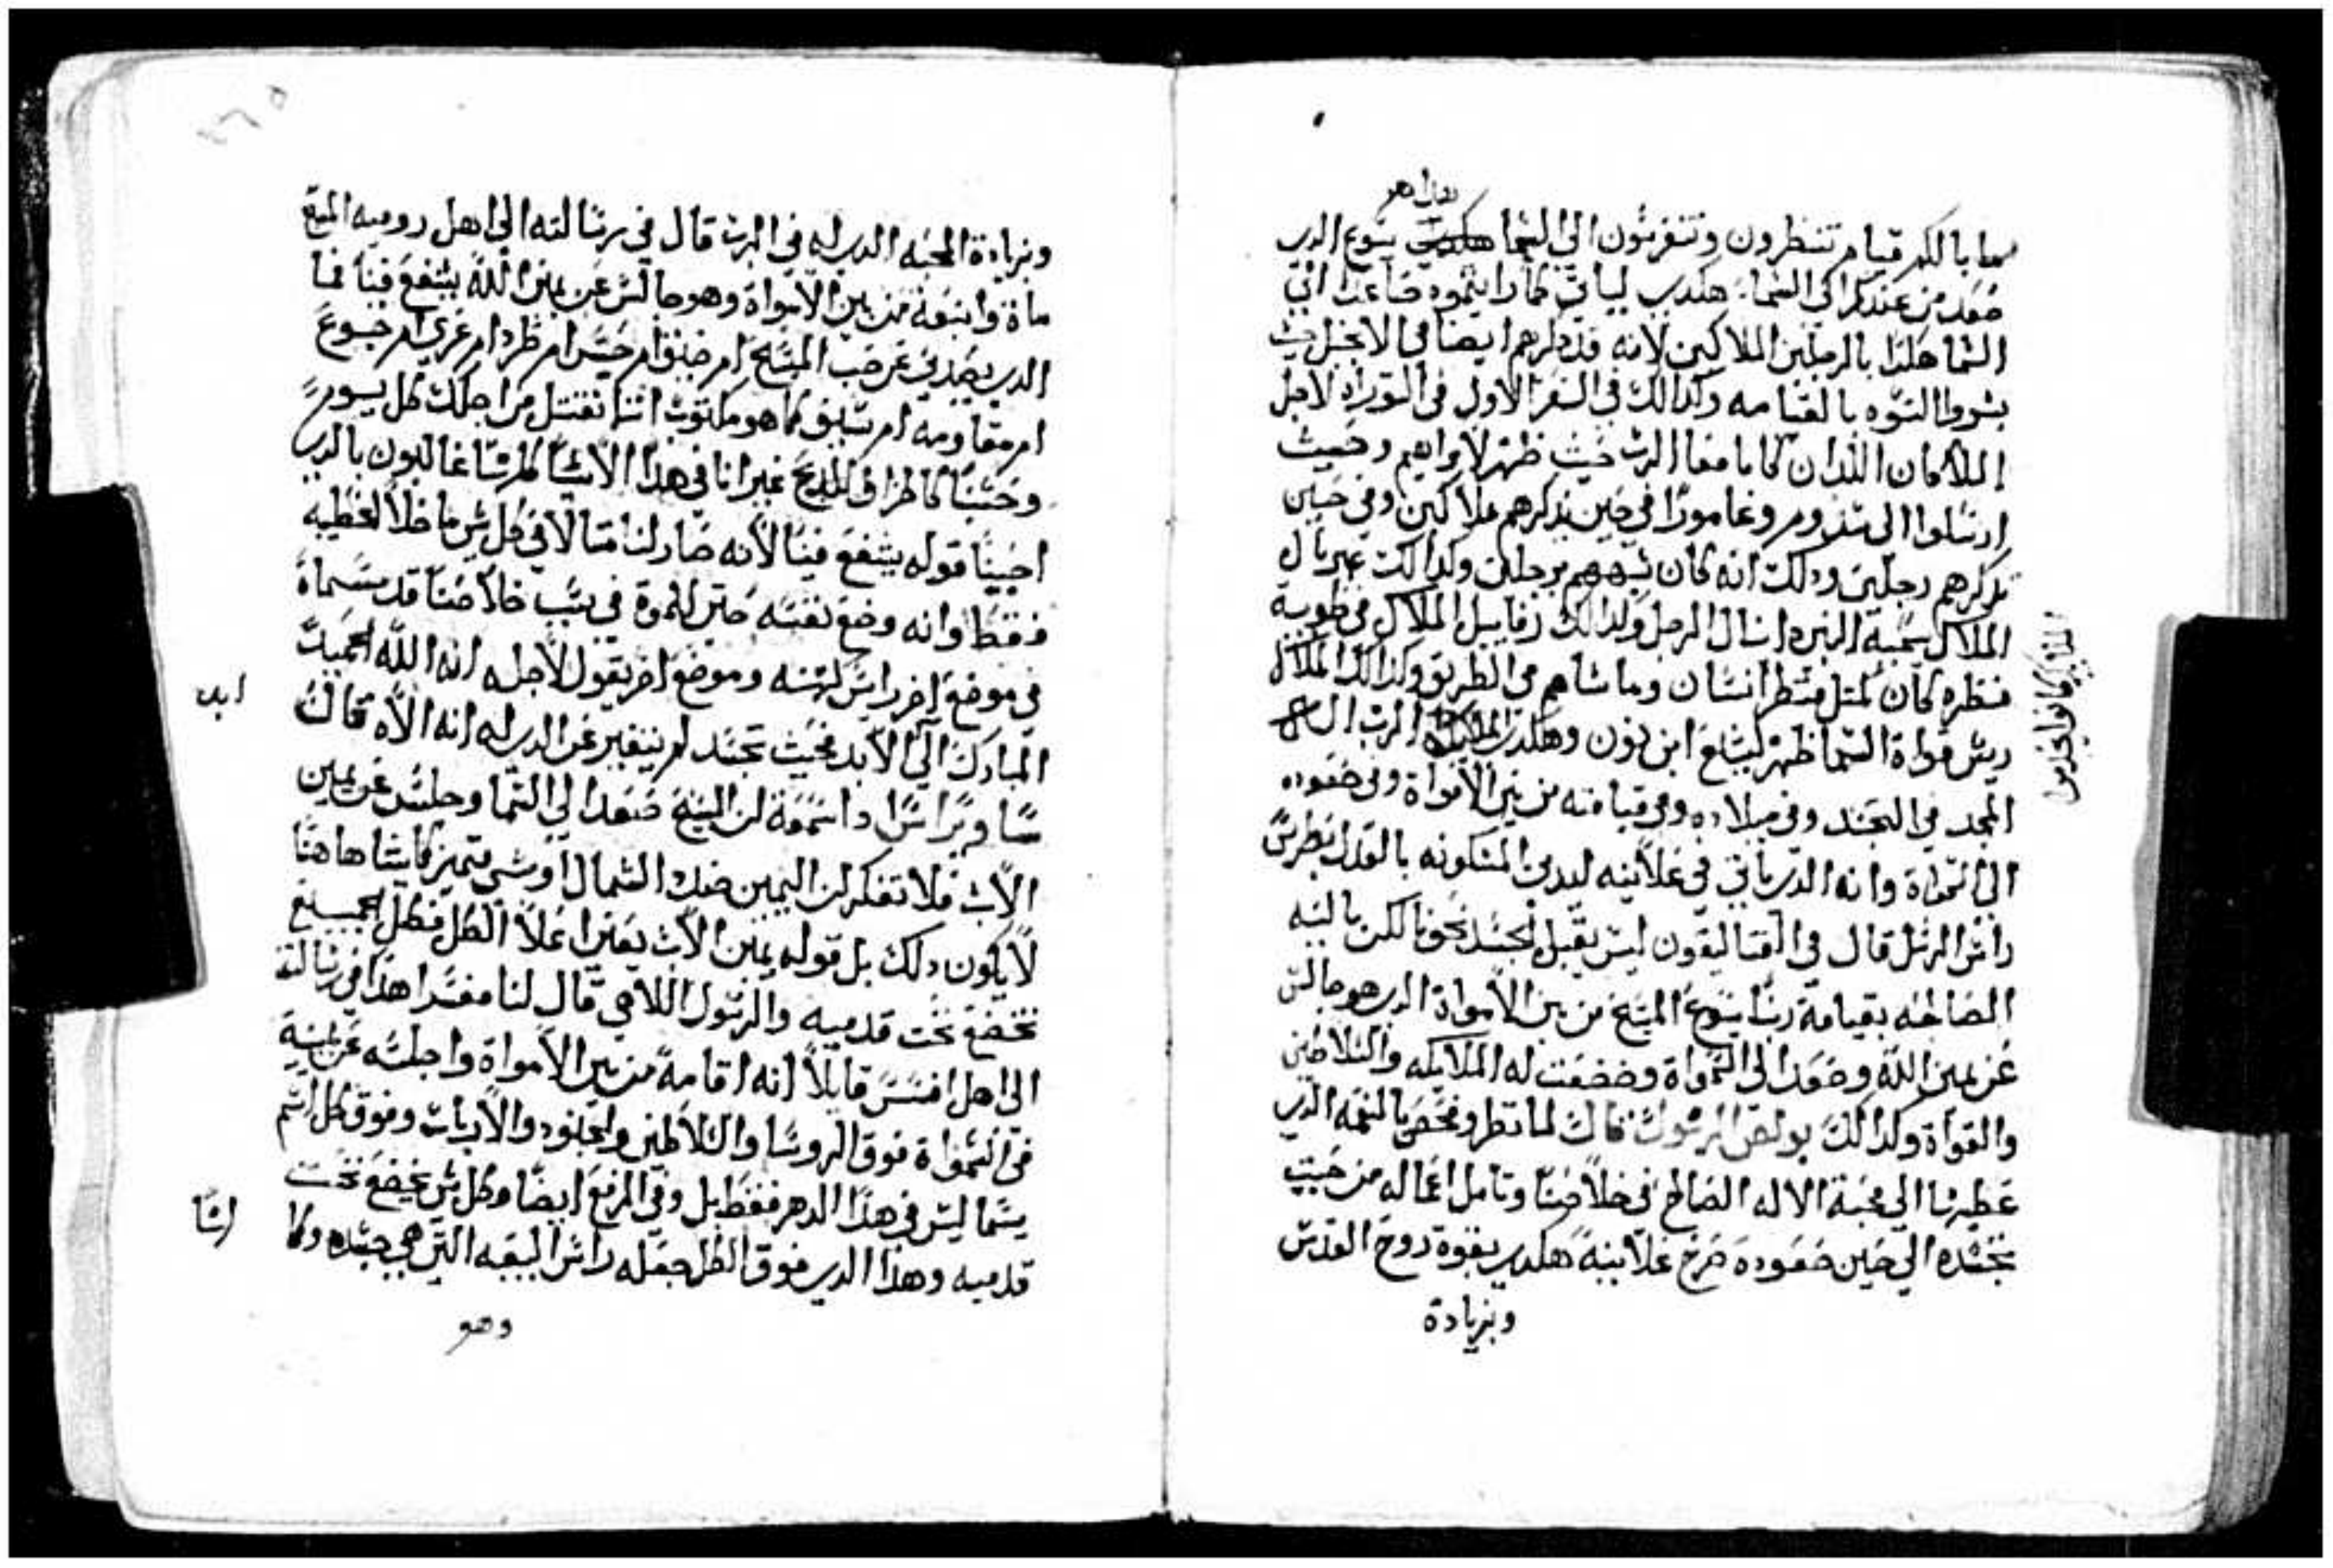 هذا هو
سما بالكم قيام تنظرون وتتفرسون الى السما هكدي يسوع الدي
صعد من عندكم الى السما هكدي لياتي كما رايتموه صاعدا الي
السما هكدا بالرجلين الملاكين لانه قد دكرهم ايضا في الانجيل حيث
بشروا النسوه بالقيامه وكدالك في السفر الاول في التوراه لاجل
الملاكان اللدان كانا معا الرب حيث ظهر لابراهيم وحيث
ارسلوا الى سدوم وغامورا في حين يدكرهم ملاكين وفي حين
يدكرهم رجلين ودلك انه كان شبههم برجلين وكدالك غبريال
الملاك يسميه النبي دانيال الرجل وكدالك رفاييل الملاك في طوبية
منظره كان كمثل منظر انسان وماشاهم في الطريق وكدالك الملاك
ريس قواة السما ظهر ليشع ابن نون وهكدي الملايكة الرب الى
المجد في التجسد وفي ميلاده وفي قيامته من بين الاموات وفي صعوده
الى السمواة وانه الدي ياتي في علانيه ليدين المسكونه بالعدل بطرس
راس الرسل قال في القتاليقون ليس بقبل الجسد نحونا لكن بالنيه
الصالحه بقيامة ربنا يسوع المسيح من بين الامواة الدي هو جالس
عن يمين الله وصعد الى السمواة وخضعت له الملايكه والسلاطين
والقواة وكدالك بولص الرسول قال لما نظر وفحص بالنعمه الدي
عطيها الي محبة الاله الصالح في خلاصنا وتامل اعماله من حيث
تجسده الي حين صعوده صرخ علانية هكدي بقوة روح القدس
وبزيادة
وبزيادة المحبه الدي له في الرب قال في رسالته الى اهل روميه المسيح
ماة وانبعة من بين الامواة وهو جالس عن يمين الله يشفع فينا فما
الدي يصدني عن حب المسيح ام ضيق ام حبس ام طرد ام عري ام جوع
ام مقاومه ام سيف كما هو مكتوب اننا نقتل من اجلك كل يوم
وحسبنا كالخراف للدبح غير انا في هدا الاشيا كلها غالبون بالدي
احبنا قوله يشفع فينا لانه صار لنا مثالا في كل شي ما خلا الخطيه
فقط وانه وضع نفسه حتى للموة في سبب خلاصنا قد سماة
في موضع اخر راس كهنه وموضع اخر يقول لاجله انه الله الجميد
المبارك الى الابد فحيث تجسد لم يتغير عن الدي له انه الاه قال
سا ويراسا واسمعة لن المسيح صعد الي السما وجلس عن يمين
الاب فلا تفكر لن اليمين ضد الشمال او شي متميز كاشا هاهنا
لا يكون دلك بل قوله يمين الاب يعني اعلا الكل فكل الجميع
تخضع تحت قدميه والرسول اللاهي قال لنا مفسرا هدا في رسالته
الى اهل افسس قايلا انه اقامه من بين الامواة واجلسه عن يمينه
في السمواة فوق الروسا والسلاطين والجنود والاربات وفوق كل اسم
يسما ليس في هدا الدهر فقط بل وفي المزمع ايضا وكل شي يخضع تحت
قدميه وهدا الدي فوق الكل جعله راس البيعه التي هي جسده وكا
وهو